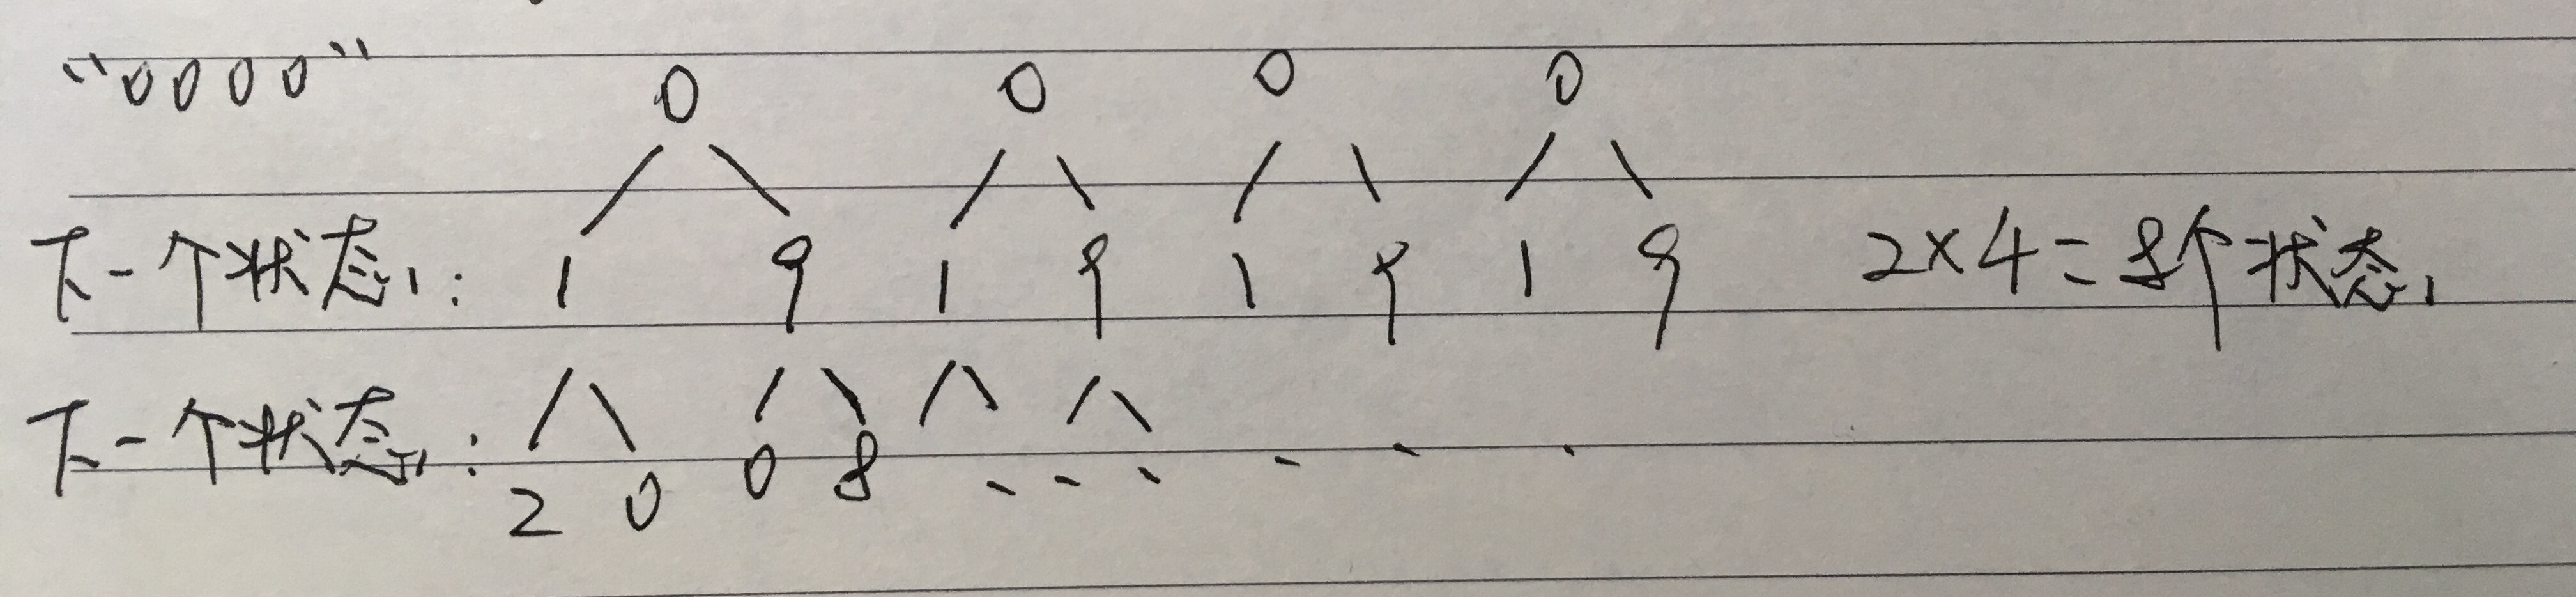 “0000” 0 0 0 0
下一个状态: 1 9 1 9 1 9 1 9 2×4=8个状态
下一个状态: 2 0 0 8 ......